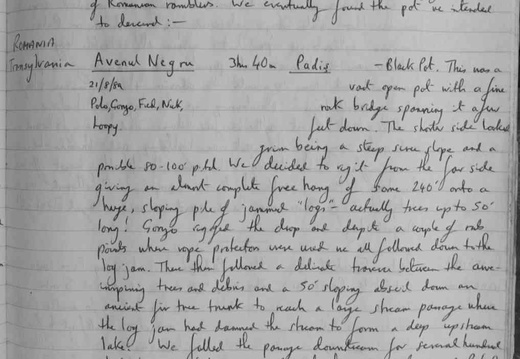 of Romanian ramblers. We eventually found the pot we intended
to descend :-
ROMANIA
Transylvania Avenul Negru 3hrs 40m Padis - Black Pot. This was a
21/8/ vast open pot with a fine
Polo, Gonzo, Fred, Nick, rock bridge spanning it a few
Loopy. feet down. The shorter side looked
being a steep scree slope and a
possible 80-100' pitch. We decided to rig it from the far side
giving an almost complete free hang of some 240' onto a
huge, sloping pile of jammed "logs" - actually trees up to 50'
long! Gonzo rigged the drop and despite a couple of rub
points where rope protectors were used we all followed down to the
log jam. There then followed a delicate traverse between the
trees and debris and a 50' sloping abseil down an
ancient fir tree trunk to reach a large stream passage where
the log jam had dammed the stream to form a deep upstream
lake. We followed the passage downstream for several hundred